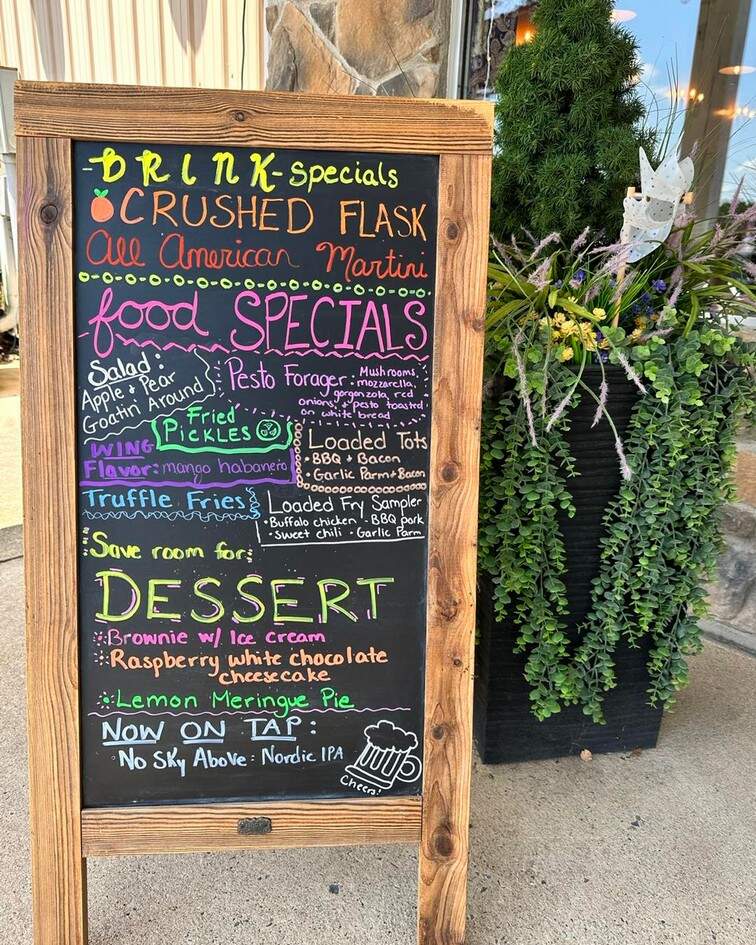 -DRINK-Specials
CRUSHED FLASK
All American Martini
food SPECIALS
Salad:
Apple + Pear
Goatin' Around
Pesto Forager: Mushrooms,
mozzarella,
gorgonzola, red
onions, + pesto toasted
on white bread
Fried
PICKLES
WING
Flavor: mango habanero
Loaded Tots
• BBQ + Bacon
• Garlic Parm + Bacon
Truffle Fries
Loaded Fry Sampler
• Buffalo chicken • BBQ pork
• sweet chili • Garlic Parm
Save room for:
DESSERT
Brownie w/ Ice cream
Raspberry white chocolate
cheesecake
Lemon Meringue Pie
NOW ON TAP:
• No Sky Above: Nordic IPA
Cheers!